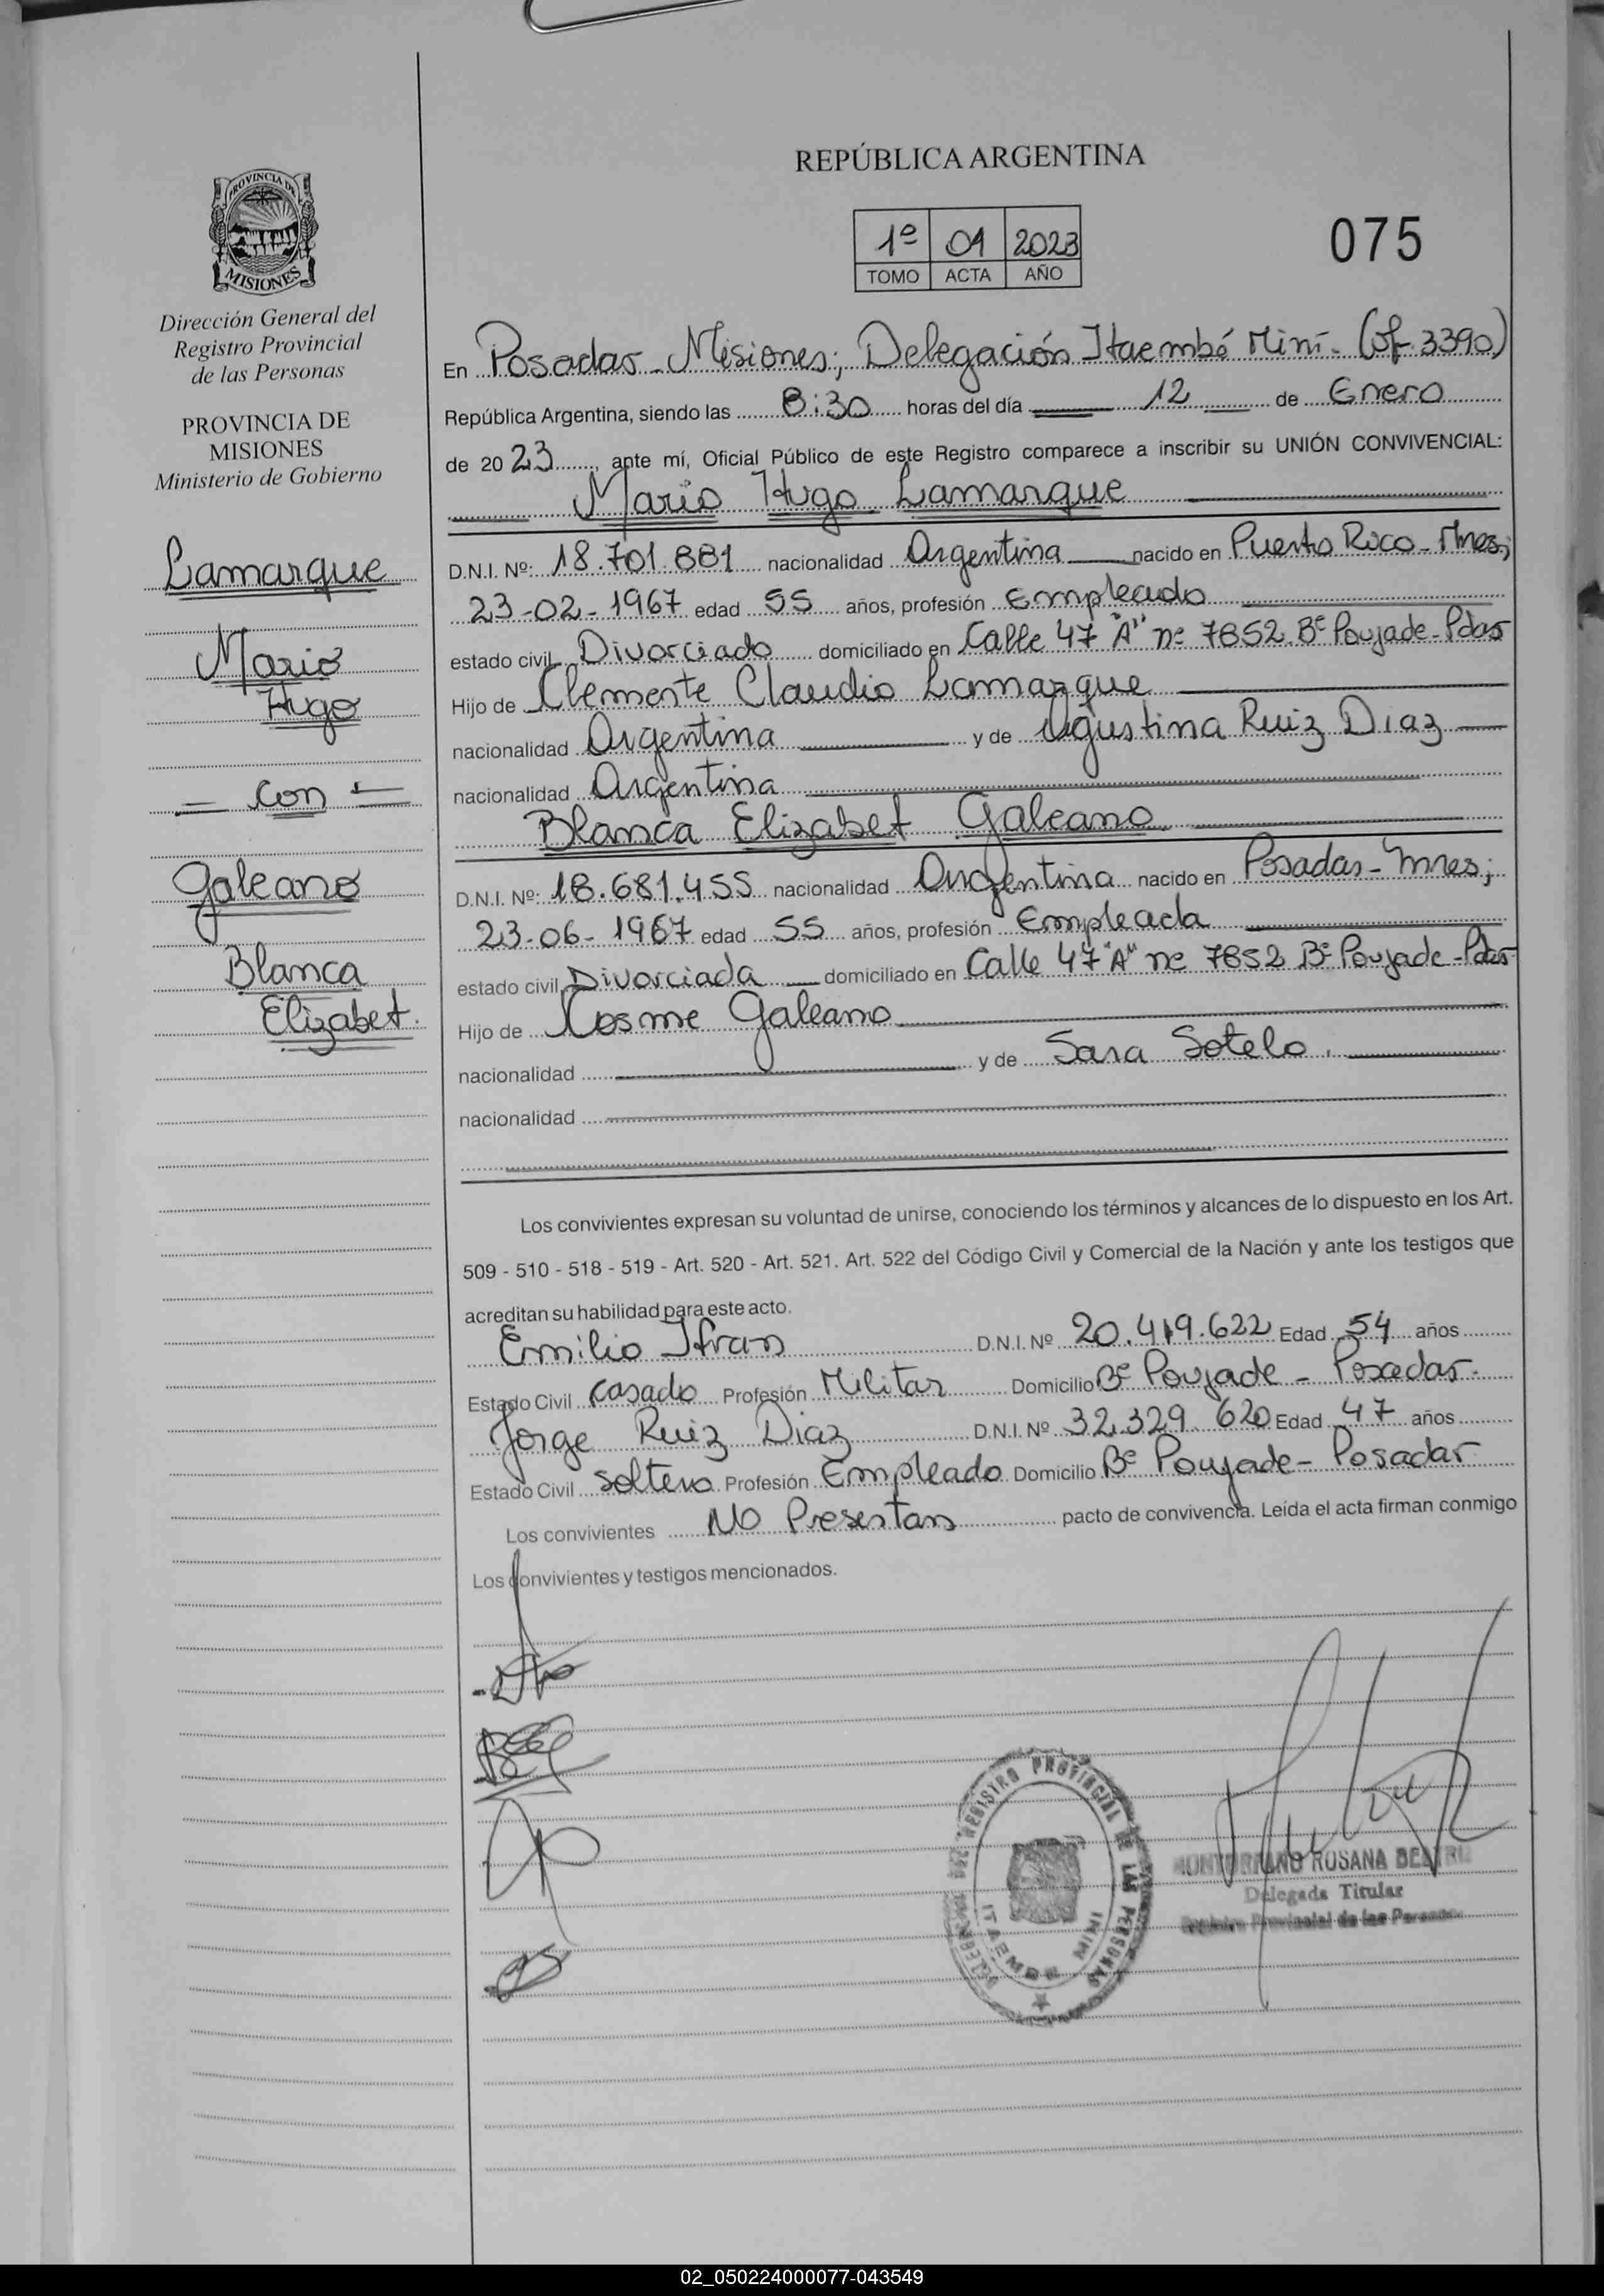 REPÚBLICA ARGENTINA
1º 01 2023
TOMO ACTA AÑO
075
PROVINCIA DE
MISIONES
Dirección General del
Registro Provincial
de las Personas
PROVINCIA DE
MISIONES
Ministerio de Gobierno
Lamarque
Mario
Hugo
— Con —
Galeano
Blanca
Elizabet.
En Posadas - Misiones; Delegación Itaembé Miní - (Of. 3390)
República Argentina, siendo las 8:30 horas del día 12 de Enero
de 2023, ante mí, Oficial Público de este Registro comparece a inscribir su UNIÓN CONVIVENCIAL:
Mario Hugo Lamarque
D.N.I. Nº: 18.701.881 nacionalidad Argentina nacido en Puerto Rico - Mnes;
23-02-1967 edad 55 años, profesión Empleado
estado civil Divorciado domiciliado en Calle 47 "A" nº 7852 Bº Poujade - Pdas
Hijo de Clemente Claudio Lamarque
nacionalidad Argentina y de Agustina Ruiz Diaz
nacionalidad Argentina
Blanca Elizabet Galeano
D.N.I. Nº: 18.681.455 nacionalidad Argentina nacido en Posadas - Mnes;
23-06-1967 edad 55 años, profesión Empleada
estado civil Divorciada domiciliado en Calle 47 "A" nº 7852 Bº Poujade - Pdas
Hijo de Cosme Galeano
nacionalidad y de Sara Sotelo.
nacionalidad
Los convivientes expresan su voluntad de unirse, conociendo los términos y alcances de lo dispuesto en los Art.
509 - 510 - 518 - 519 - Art. 520 - Art. 521. Art. 522 del Código Civil y Comercial de la Nación y ante los testigos que
acreditan su habilidad para este acto.
Emilio Ifran D.N.I. Nº 20.419.622 Edad 54 años
Estado Civil Casado Profesión Militar Domicilio Bº Poujade - Posadas.
Jorge Ruiz Diaz D.N.I. Nº 32.329.620 Edad 47 años
Estado Civil Soltero Profesión Empleado Domicilio Bº Poujade - Posadas
Los convivientes No Presentan pacto de convivencia. Leída el acta firman conmigo
Los convivientes y testigos mencionados.
REGISTRO PROVINCIAL DE LAS PERSONAS
ITAEMBE MINI
ROSANA
Delegada Titular
Registro Provincial de las Personas
02_050224000077-043549